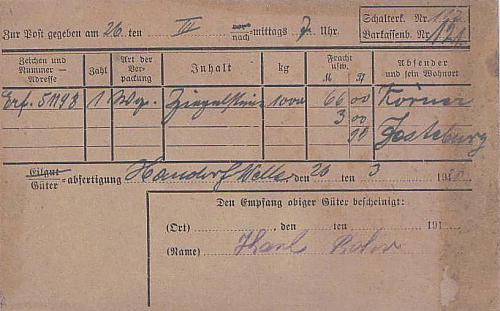 Zur Post gegeben am 26 ten III vor-/nach-mittags 7 Uhr.
Schalterk. Nr.
Barkassenb. Nr. 121.
Zeichen und Nummer — Adresse
Zahl
Art der Verpackung
Inhalt
kg
Fracht usw.
M ₰
Absender und sein Wohnort
Erf. 51198 1 Wg. Ziegelsteine 10000 66 00 Körner
3 00
90
Eilgut/Güter=abfertigung den 26 ten 3 19
Den Empfang obiger Güter bescheinigt:
(Ort) , den ten 191
(Name) Karl